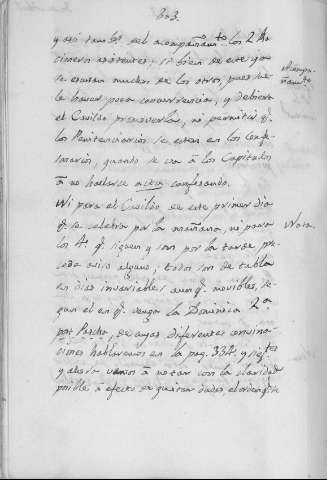 303.
y así tamb.n del acompañam.to los 2 Ra
cioneros asistentes; si bien de este que
se escusan muchos de los otros, pues suele
haver poca concurrencia, y debiera
el Cavildo promoverla, ni permitir q.
los Penitenciarios se esten en los Confe-
sonarios, quando se va á los Capitulos
á no hallarse actu confesando.
Acompa-
ñamto.
Ni para el Cavildo de este primer dia
q. se celebra por la mañana, ni para
los 4. q. siguen y son por la tarde pre-
cede aviso alguno; todos son de tabla
en dias invariables aunq. movibles, se-
gun el en q. venga la Dominica 2a
post Pascha, de cuyas diferentes
ciones hablaremos en la pag. 332. y sig.tes
y ahora vamos á notar con la claridad
posible á efecto de quitar dudas, el orden q. se
Nota.